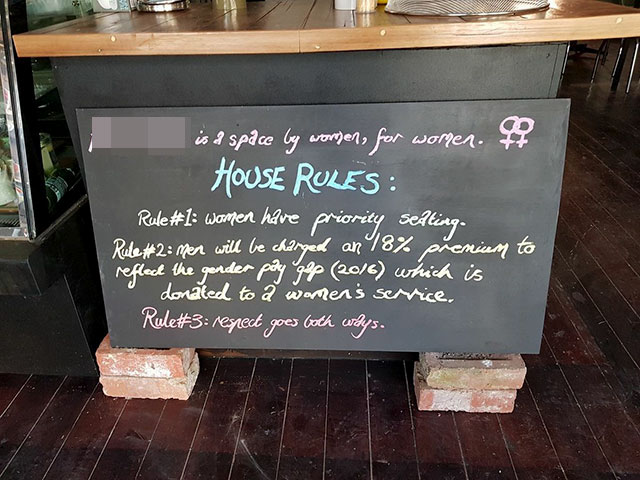 is a space by women, for women.
HOUSE RULES:
Rule#1: women have priority seating.
Rule#2: men will be charged an 18% premium to
reflect the gender pay gap (2016) which is
donated to a women's service.
Rule#3: respect goes both ways.